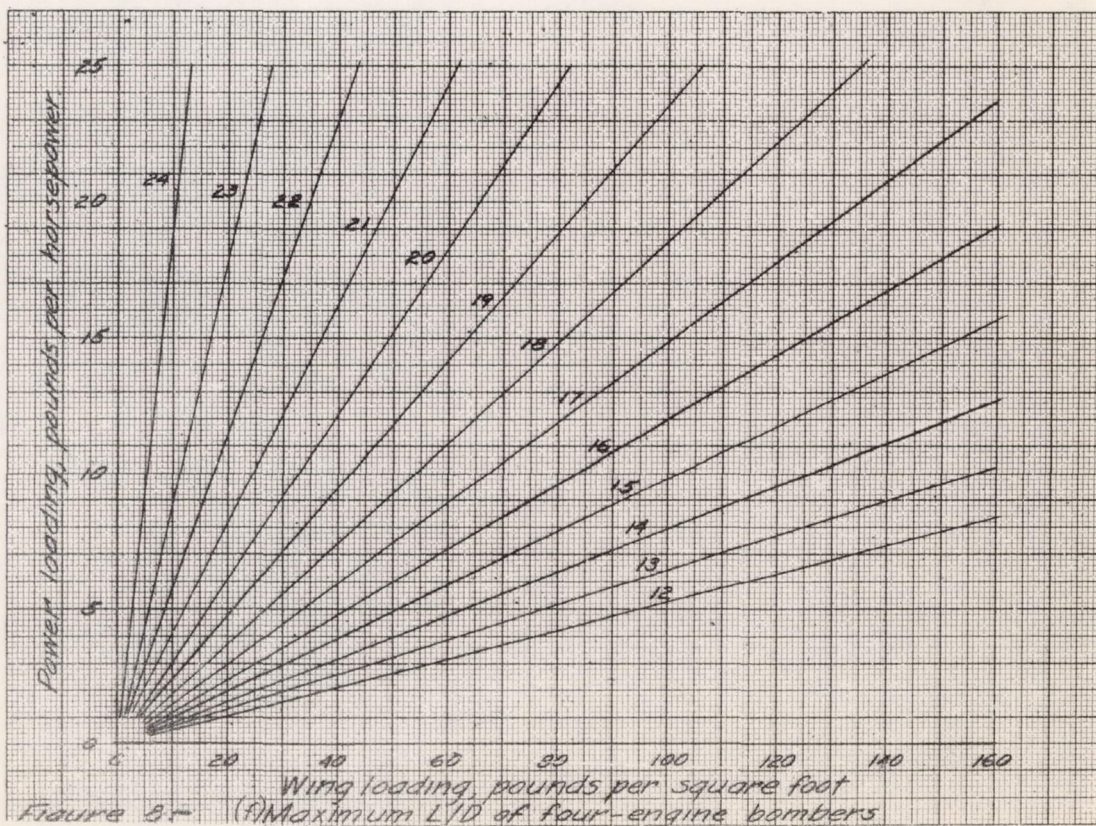 Power loading, pounds per horsepower.
25
20
15
10
5
0
24
23
22
21
20
19
18
17
16
15
14
13
12
0 20 40 60 80 100 120 140 160
Wing loading, pounds per square foot
Figure 8.- (f) Maximum L/D of four-engine bombers